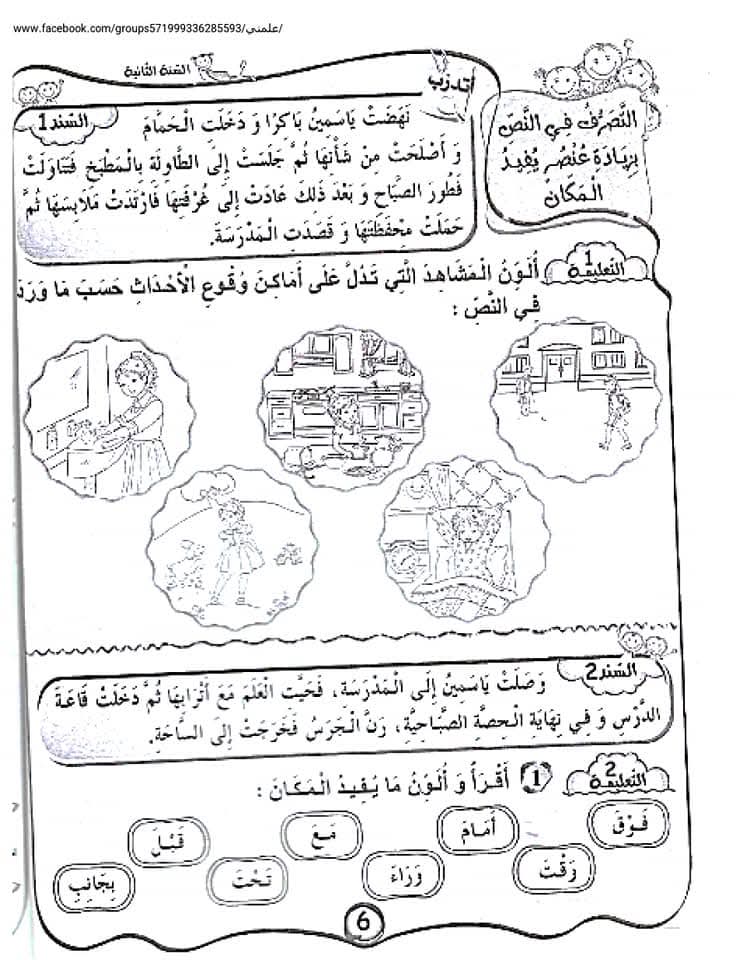 www.facebook.com/groups571999336285593/علمني/
السّنة الثّانية
أتدرّب
التَّصَرُّفُ فِي النَّصّ
بِزِيَادَةِ عُنْصُرٍ يُفِيدُ
الْمَكَانَ
السّند1
نَهَضَتْ يَاسَمِينُ بَاكِرًا وَ دَخَلَتِ الْحَمَّامَ
وَ أَصْلَحَتْ مِنْ شَأْنِهَا ثُمَّ جَلَسَتْ إِلَى الطَّاوِلَةِ بِالْمَطْبَخِ فَتَنَاوَلَتْ
فَطُورَ الصَّبَاحِ وَ بَعْدَ ذَلِكَ عَادَتْ إِلَى غُرْفَتِهَا فَارْتَدَتْ مَلَابِسَهَا ثُمَّ
حَمَلَتْ مِحْفَظَتَهَا وَ قَصَدَتِ الْمَدْرَسَةَ.
التّعليمة 1
أُلَوِّنُ الْمَشَاهِدَ الَّتِي تَدُلُّ عَلَى أَمَاكِنَ وُقُوعِ الْأَحْدَاثِ حَسَبَ مَا وَرَدَ
فِي النَّصِّ :
السّند2
وَصَلَتْ يَاسَمِينُ إِلَى الْمَدْرَسَةِ، فَحَيَّتِ الْعَلَمَ مَعَ أَتْرَابِهَا ثُمَّ دَخَلَتْ قَاعَةَ
الدَّرْسِ وَ فِي نِهَايَةِ الْحِصَّةِ الصَّبَاحِيَّةِ، رَنَّ الْجَرَسُ فَخَرَجَتْ إِلَى السَّاحَةِ.
التّعليمة 2
1 أَقْرَأُ وَ أُلَوِّنُ مَا يُفِيدُ الْمَكَانَ :
فَوْقَ
أَمَامَ
مَعَ
قَبْلَ
وَقْتَ
وَرَاءَ
تَحْتَ
بِجَانِبِ
6